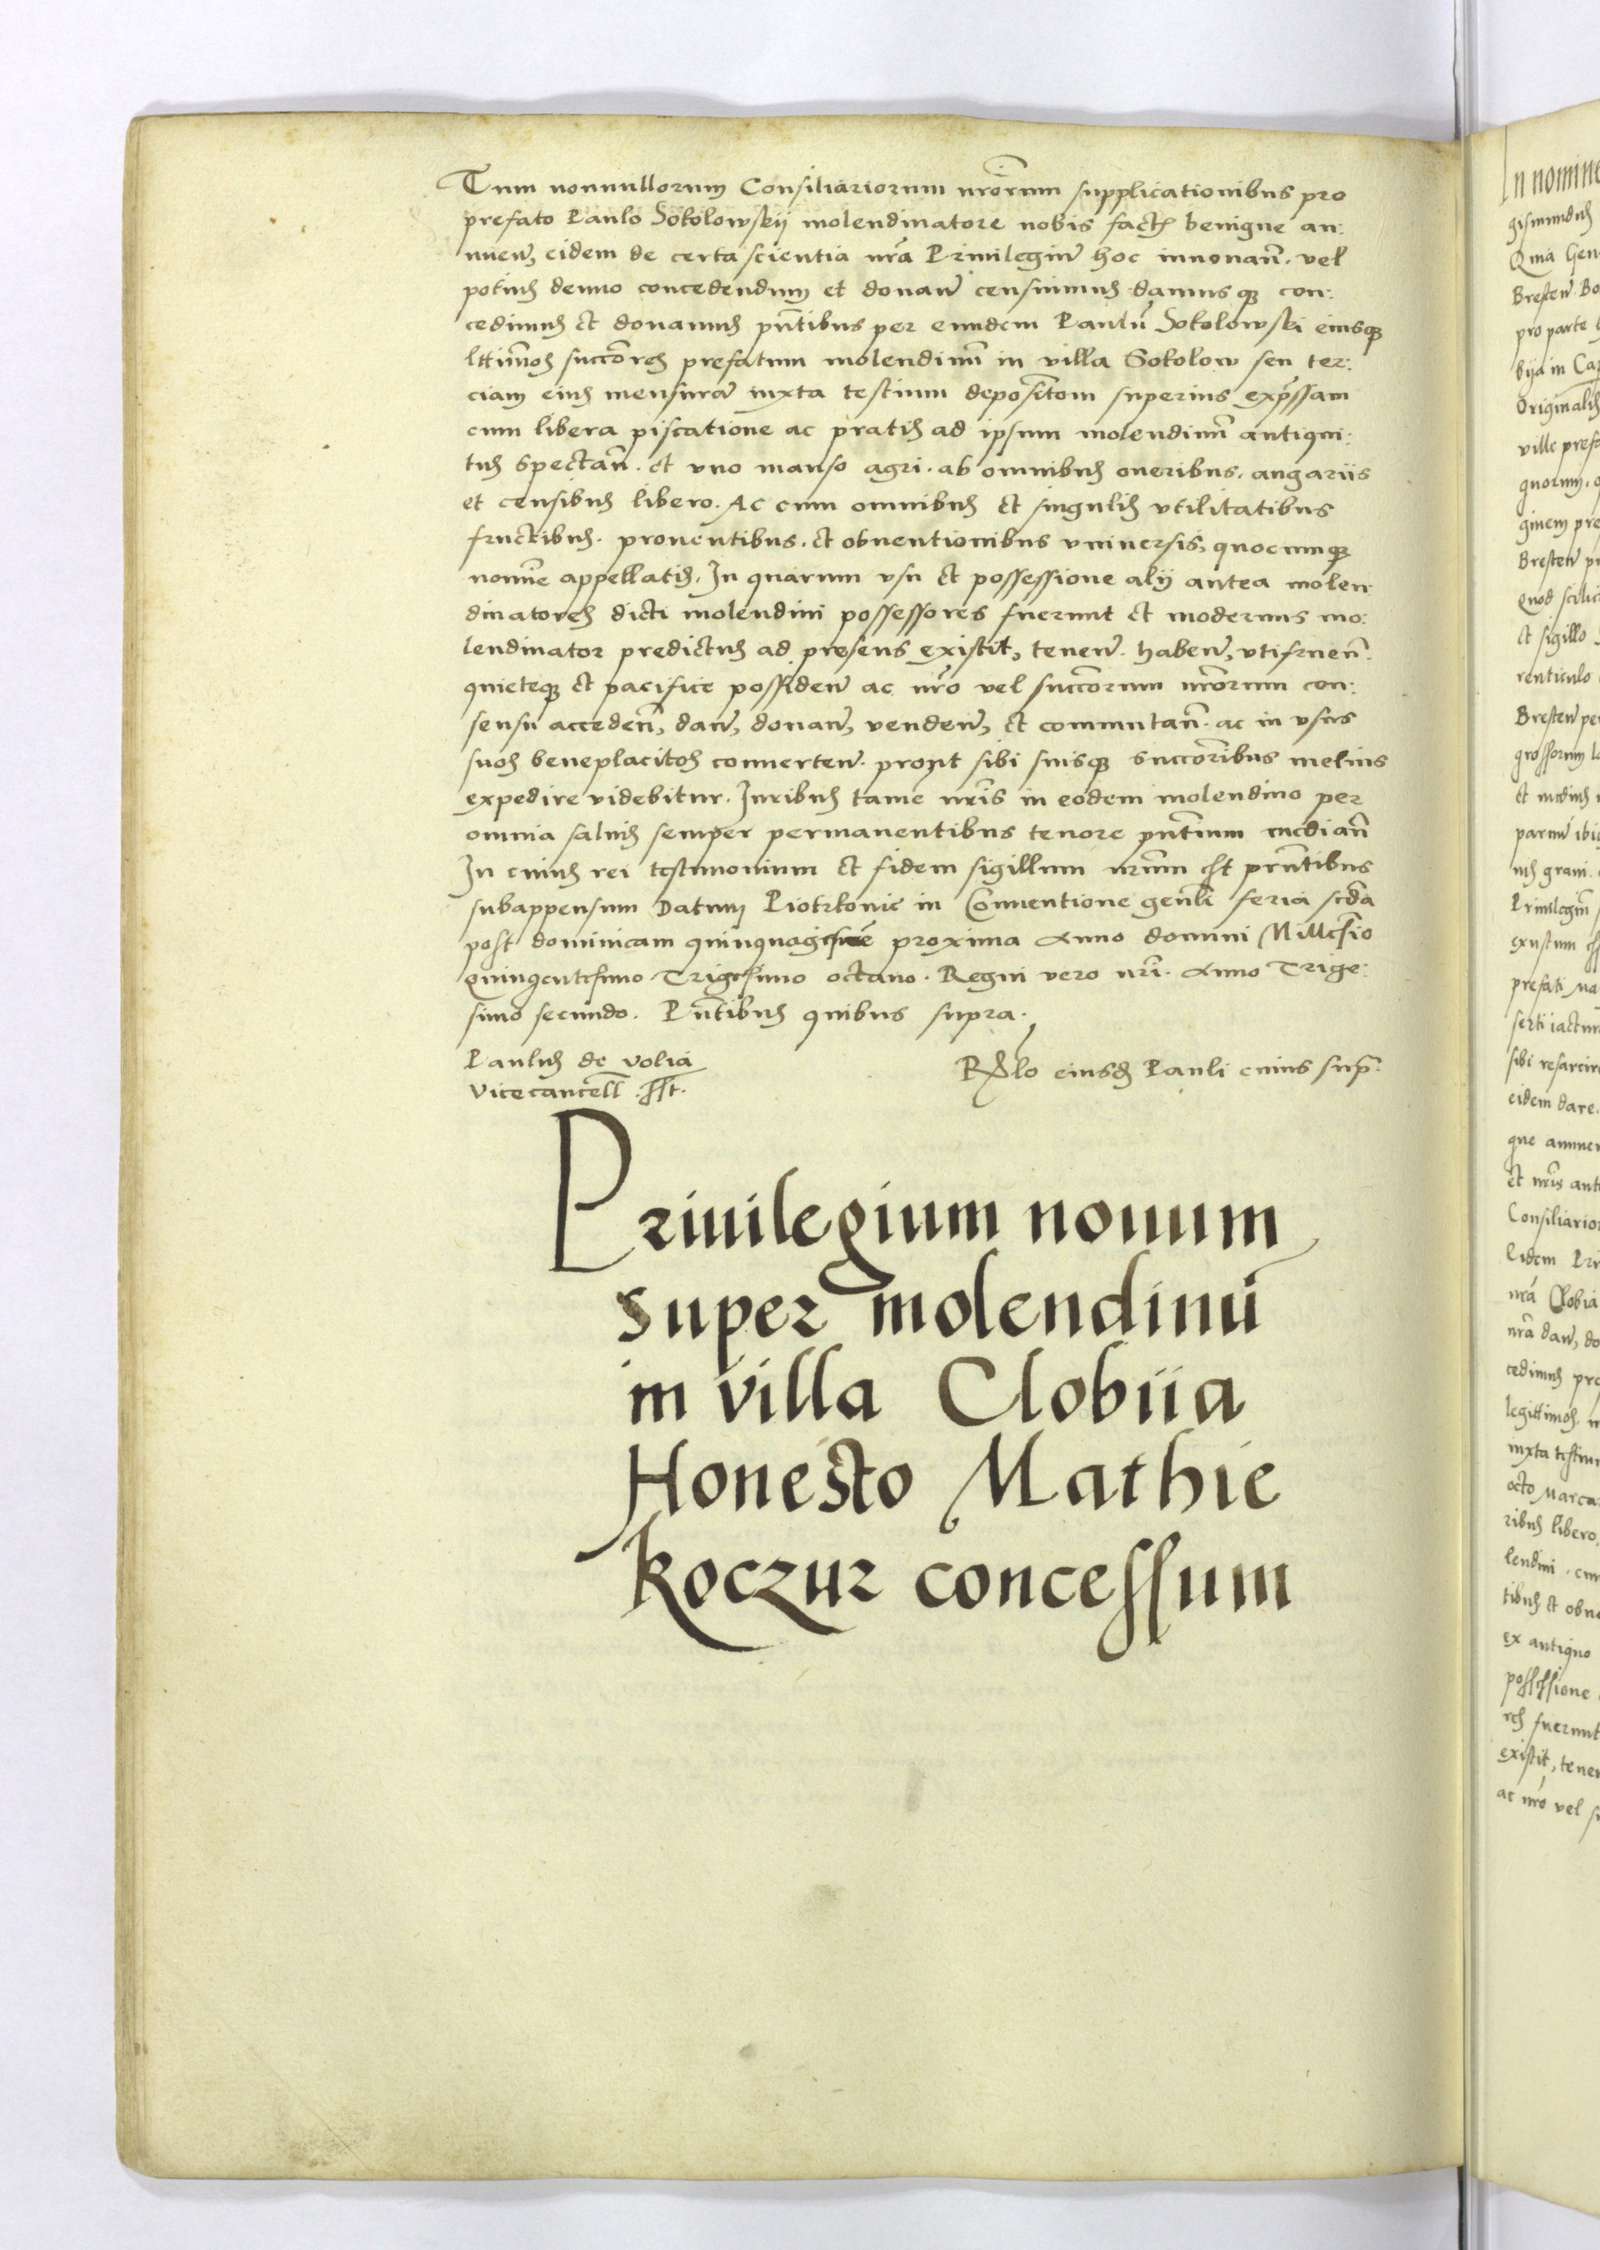 Tum nonnullorum Consiliariorum nrorum supplicationibus pro
prefato Paulo Sokolowskij molendinatore nobis fact benigne an:
nuen, eidem de certa scientia nra Priuilegium hoc innouan. vel
potius denuo concedendum et donan censuimus damusq con:
cedimus et donamus pntibus per eundem Paulu Sokolowski eiusq
lttimos succores prefatum molendinu in villa Sokolow seu ter:
ciam eius mensuram iuxta testium depositom superius expressam
cum libera piscatione ac pratis ad ipsum molendinu antiqui:
tus spectan. et vno manso agri. ab omnibus oneribus. angariis
et censibus libero. Ac cum omnibus et singulis vtilitatibus
fructibus. prouentibus. et obuentionibus vniuersis, quocunq
nomine appellatis. In quarum vsu et possessione alij antea molen
dinatores dicti molendini possessores fuerunt et modernus mo:
lendinator predictus ad presens existit, tenen. haben, vtifruen.
quieteq et pacifice possiden ac nro vel succorum nrorum con:
sensu acceden, dan, donan, venden, et commutan. ac in vsus
suos beneplacitos conuerten. prout sibi suisq succoribus melius
expedire videbitur. Iuribus tame nris in eodem molendino per
omnia saluis semper permanentibus tenore pntium median
In cuius rei testimonium et fidem sigillum nrum est prntibus
subappensum Datum Piotrkouie in Conuentione genli feria scda
post dominicam quinquagesime proxima Anno domini Millesio
quingentesimo Trigesimo octauo. Regni vero nri. Anno Trige:
simo secundo. Pntibus quibus supra.
Paulus de Volia
Vicecancell. sst.
Rlo eiusd Pauli cuius sup.
Priuilegium nouum
super molendinu
in villa Clobiia
Honesto Mathie
Koczur concessum
In nomine
gismundus
Quia Gen
Bresten. Bo
pro parte
bija in Cap
Originalis
ville prefa
quorum.
ginem pre
Bresten pr
quod scilic
et sigillo
renticulo
Bresten per
grossorum
et medius
parum ibi
us graui.
Priuilegium
exustum
prefati Ma
serti iactur
sibi resarcire
eidem dare.
que annuen
et nris ant
Consiliarior
Eidem Pri
nra Clobia
nra dan, do
cedimus pre
legittimos
iuxta testium
octo Marca
ribus libero
lendini. cum
tibus et obue
ex antiquo
possessione
res fuerunt
existit, tenen
ac nro vel su